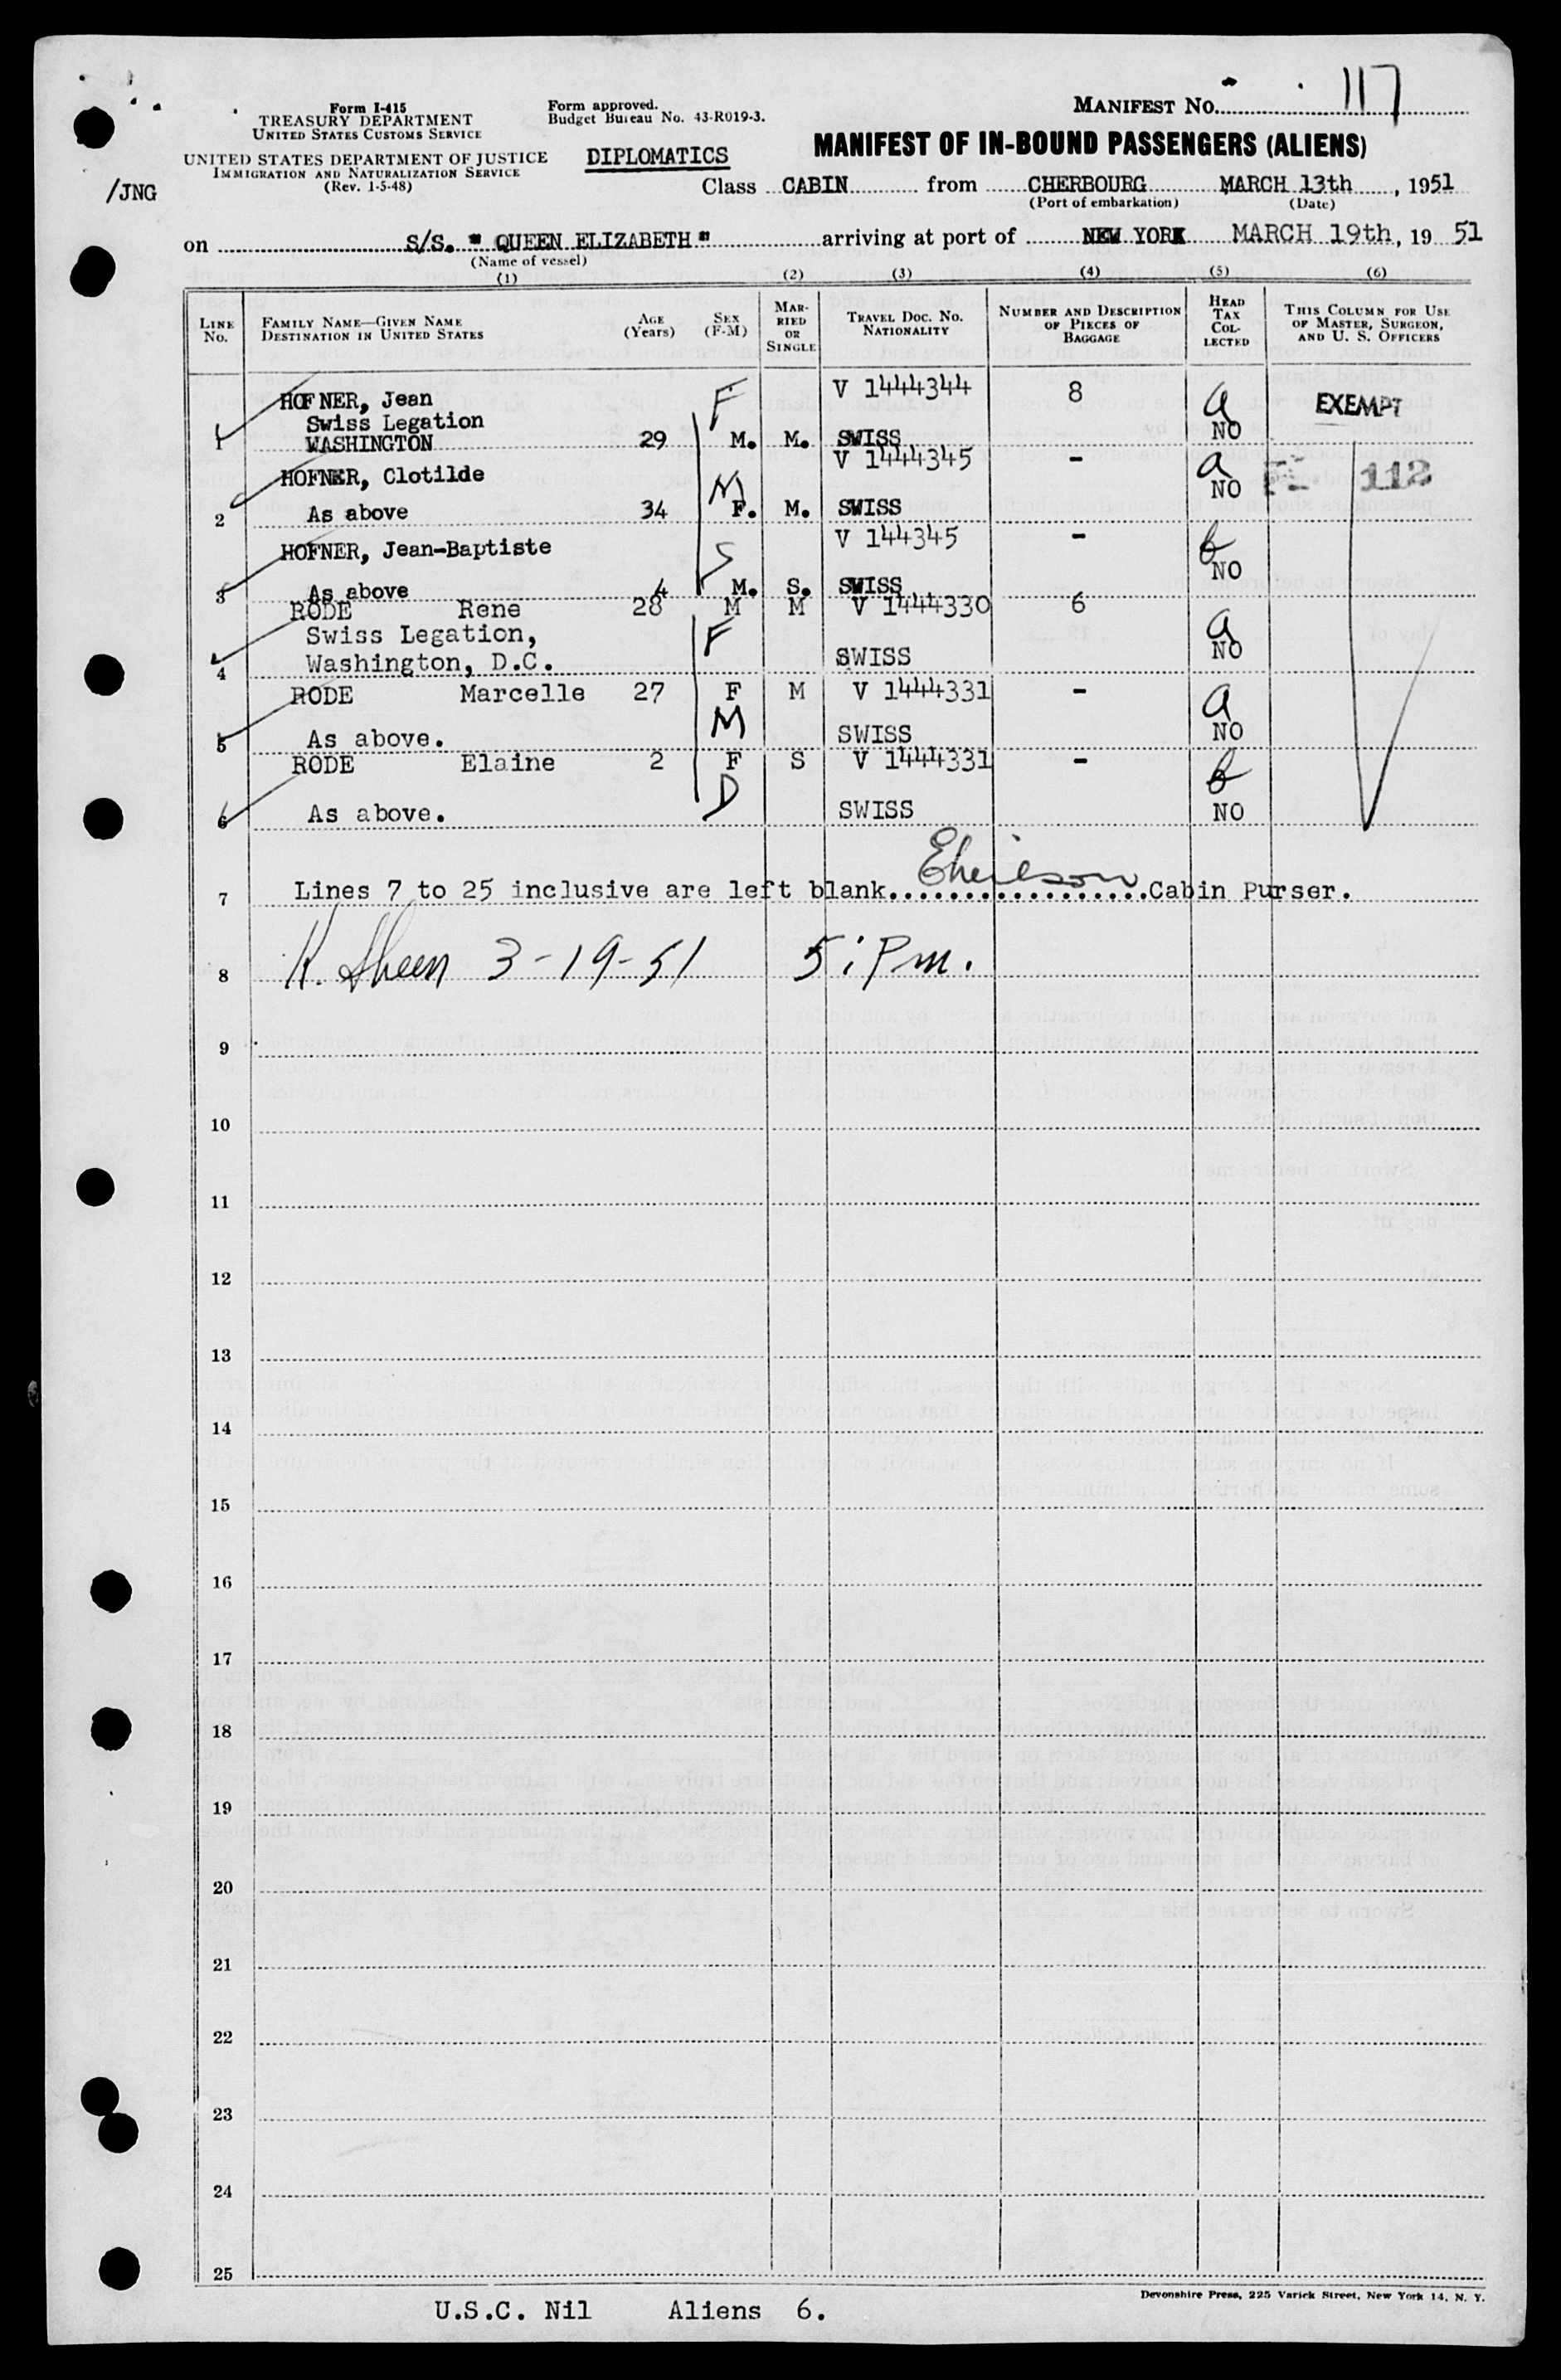 MANIFEST No. 117
Form I-415
TREASURY DEPARTMENT
UNITED STATES CUSTOMS SERVICE
UNITED STATES DEPARTMENT OF JUSTICE
IMMIGRATION AND NATURALIZATION SERVICE
(Rev. 1-5-48)
Form approved.
Budget Bureau No. 43-R019-3.
DIPLOMATICS
MANIFEST OF IN-BOUND PASSENGERS (ALIENS)
/JNG
Class CABIN from CHERBOURG MARCH 13th, 1951
(Port of embarkation) (Date)
on S/S. " QUEEN ELIZABETH" arriving at port of NEW YORK MARCH 19th, 19 51
(Name of vessel)
(1) (2) (3) (4) (5) (6)
LINE No. FAMILY NAME—GIVEN NAME DESTINATION IN UNITED STATES AGE (Years) SEX (F-M) MARRIED OR SINGLE TRAVEL DOC. No. NATIONALITY NUMBER AND DESCRIPTION OF PIECES OF BAGGAGE HEAD TAX COLLECTED THIS COLUMN FOR USE OF MASTER, SURGEON, AND U. S. OFFICERS
HOFNER, Jean F V 1444344 8 a EXEMPT
Swiss Legation
1 WASHINGTON 29 M. M. SWISS NO
HOFNER, Clotilde M V 1444345 - a 112
2 As above 34 F. M. SWISS NO
HOFNER, Jean-Baptiste S V 144345 - b
3 As above 4 M. S. SWISS NO
RODE Rene 28 M M V 1444330 6 a
Swiss Legation, F
4 Washington, D.C. SWISS NO
RODE Marcelle 27 F M V 1444331 - a
5 As above. M SWISS NO
RODE Elaine 2 F S V 1444331 - b
6 As above. D SWISS NO
7 Lines 7 to 25 inclusive are left blank.................Cabin Purser.
8 K. Sheen 3-19-51 5: Pm.
9
10
11
12
13
14
15
16
17
18
19
20
21
22
23
24
25
Devonshire Press, 225 Varick Street, New York 14, N. Y.
U.S.C. Nil Aliens 6.